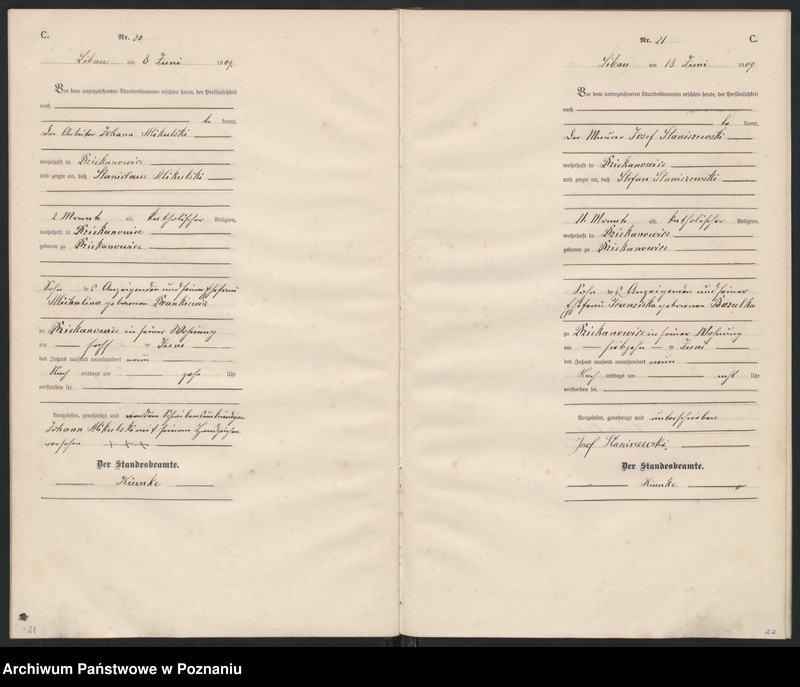 C.
Nr. 20
Libau am 8 Juni 1909.
Vor dem unterzeichneten Standesbeamten erschien heute, der Persönlichkeit
nach
be kannt,
Der Arbeiter Johann Mikulski
wohnhaft in Dziekanowice
und zeigte an, daß Stanislaus Mikulski
2 Monate alt, katholischer Religion,
wohnhaft in Dziekanowice
geboren zu Dziekanowice
Sohn des Anzeigenden und seiner Ehefrau
Mikalina geborenen
zu Dziekanowice in seiner Wohnung
am sechs ten Juni
des Jahres tausend neunhundert neun
Nach mittags um zehn Uhr
verstorben sei.
Vorgelesen, genehmigt und von dem Schreibensunkundigen
Johann Mikulski mit seinem Handzeichen
versehen +++
Der Standesbeamte.
Kiunke
21
Nr. 21
C.
Libau am 18 Juni 1909
Vor dem unterzeichneten Standesbeamten erschien heute, der Persönlichkeit
nach
be kannt,
Der Maurer Josef Staniszewski
wohnhaft in Dziekanowice
und zeigte an, daß Stefan Staniszewski
11 Monate alt, katholischer Religion,
wohnhaft in Dziekanowice
geboren zu Dziekanowice
Sohn des Anzeigenden und seiner
Ehefrau Franziska geborenen
zu Dziekanowice in seiner Wohnung
am siebzehn ten Juni
des Jahres tausend neunhundert neun
Nach mittags um acht Uhr
verstorben sei.
Vorgelesen, genehmigt und unterschrieben
Josef Staniszewski.
Der Standesbeamte.
Kiunke
22
Archiwum Państwowe w Poznaniu